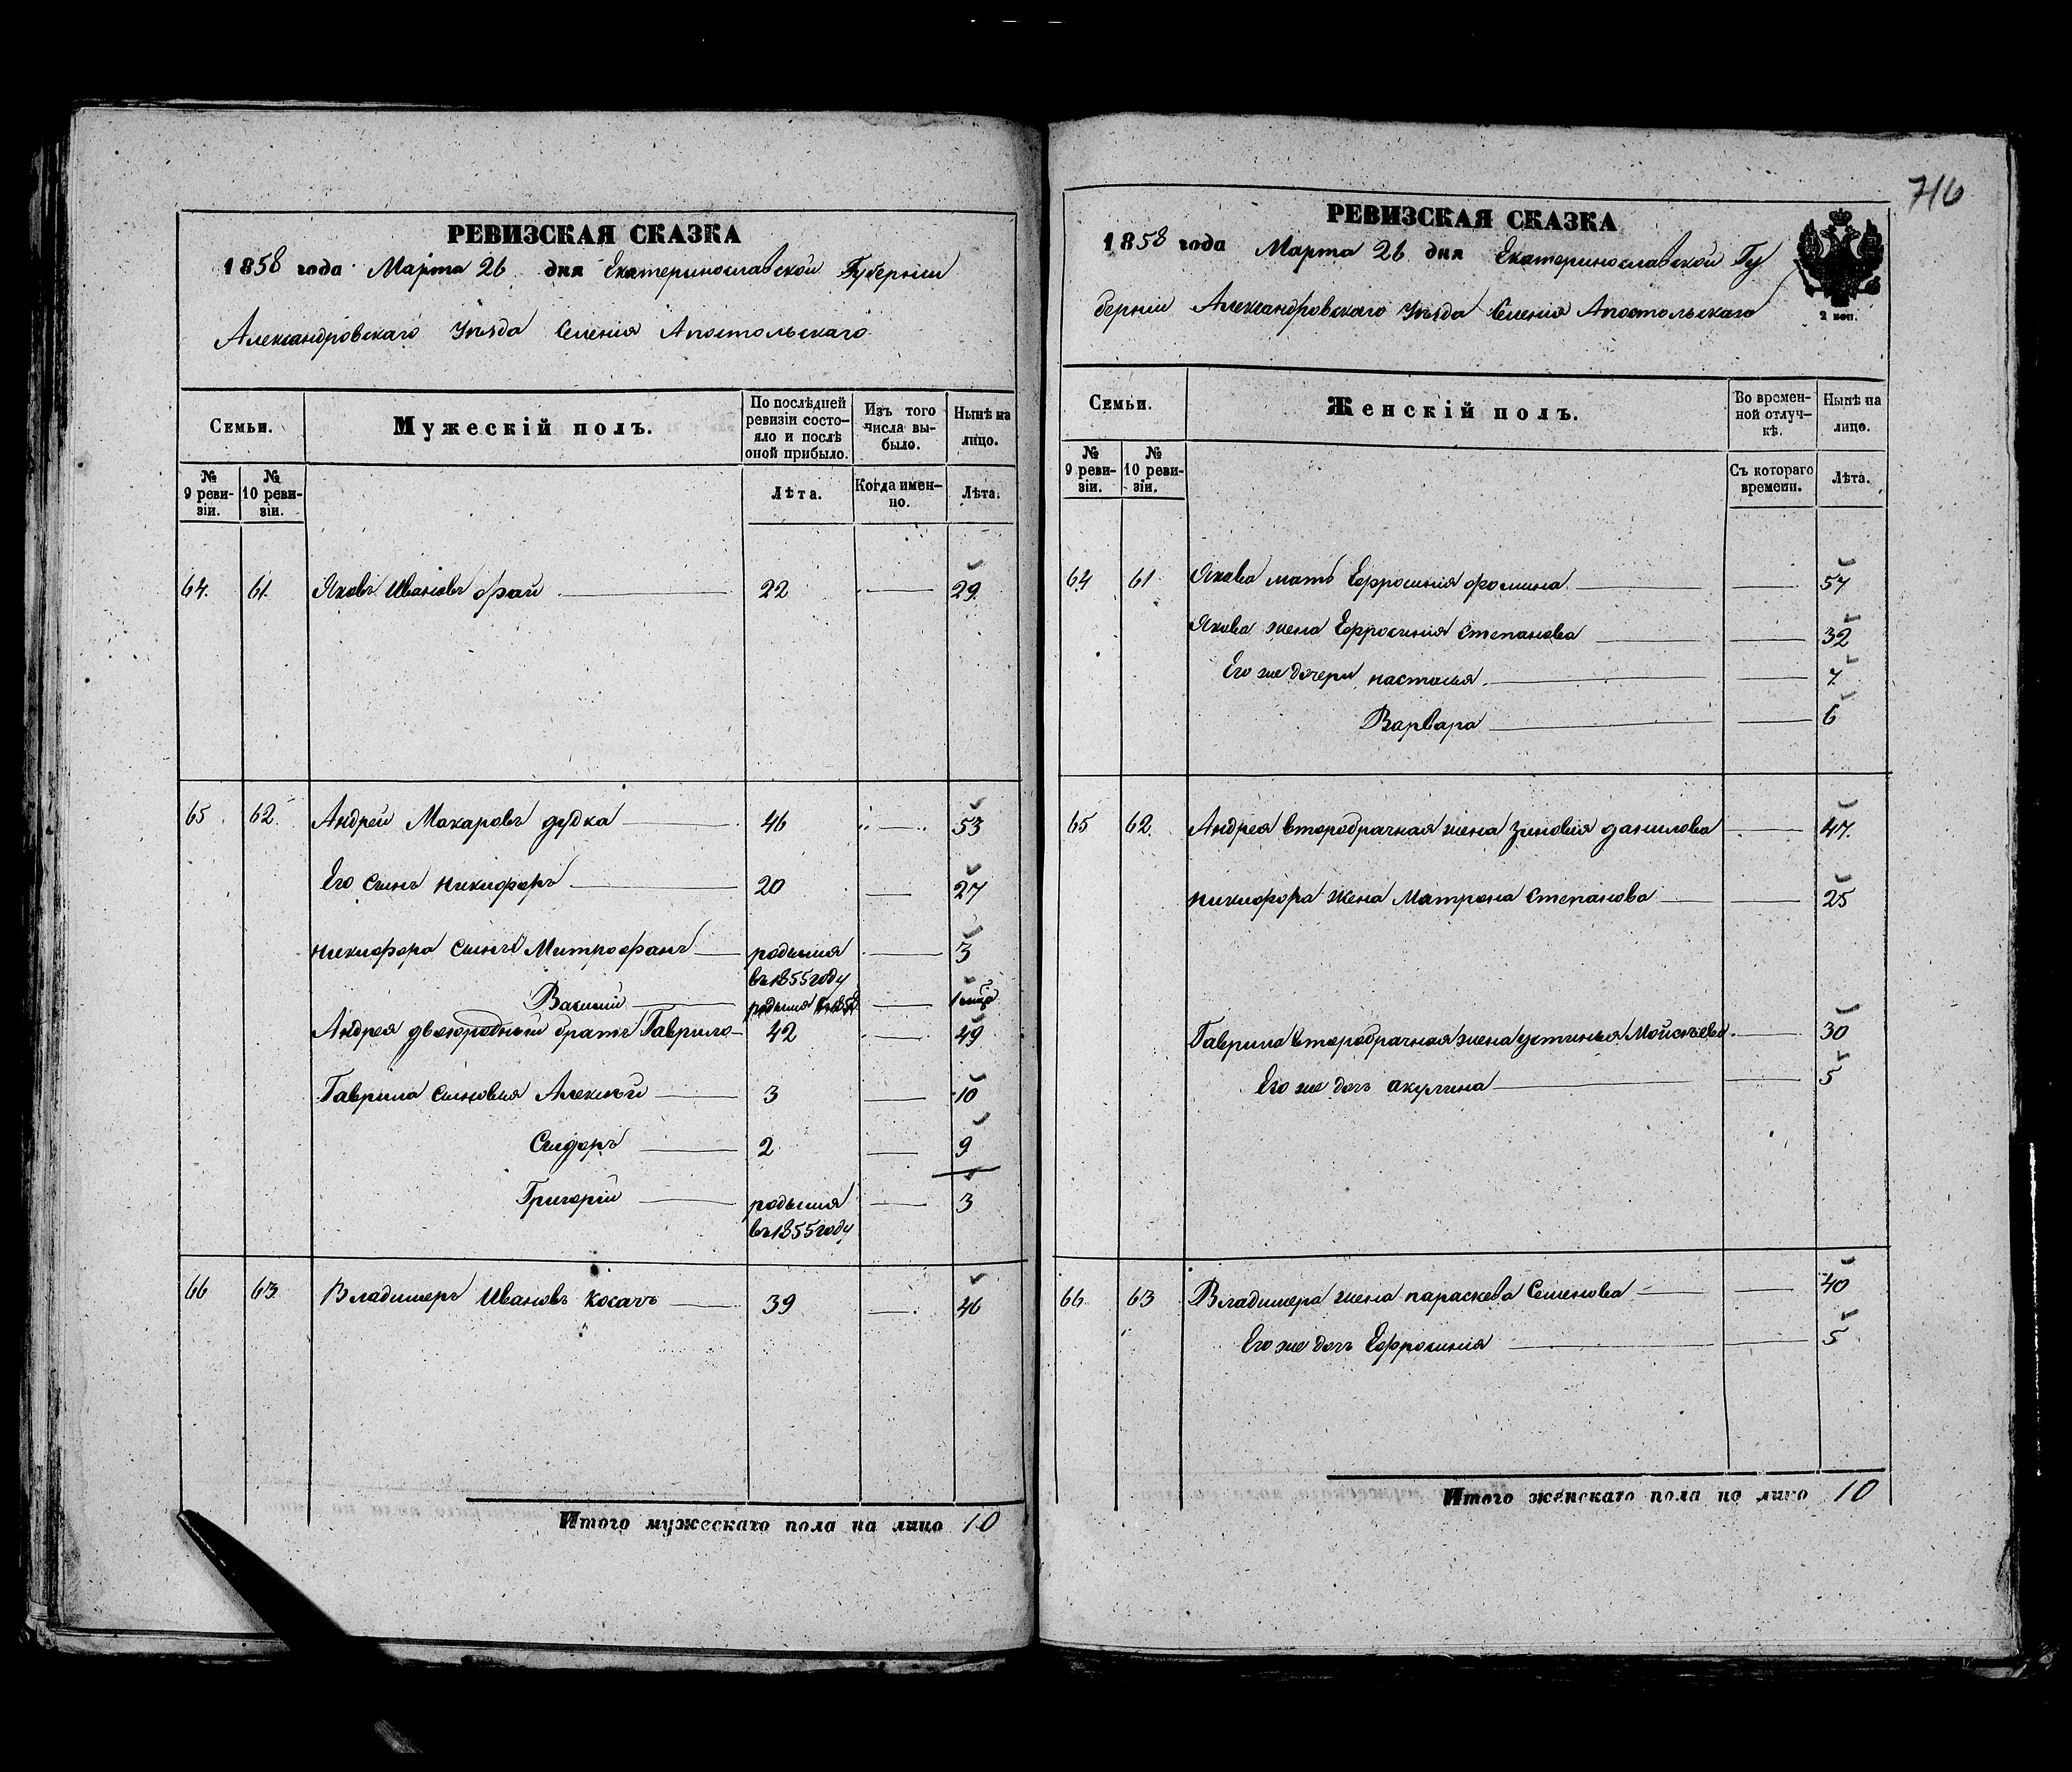 716
РЕВИЗСКАЯ СКАЗКА
1858 года Марта 26 дня Екатеринославской Губерніи
Александровскаго Уѣзда Селенія Апостольскаго
Семьи.
Мужескій полъ.
По послѣдней ревизіи состо-
яло и послѣ оной прибыло.
Изъ того числа вы-
было.
Нынѣ на лицо.
№ 9 реви-
зіи.
№ 10 реви-
зіи.
Лѣта.
Когда имен-
но.
Лѣта.
64. 61. Яковъ Ивановъ Фрай 22 29.
65 62. Андрей Макаровъ дудка 46 53
Его сынъ никифоръ 20 27
никифора сынъ Митрофанъ родился 3
въ 1855 году
Василий родился
Андрея двоюродный братъ Гаврило 42 49
Гаврила сыновья Алексѣй 3 10
Сидоръ 2 9
Григорій родился 3
въ 1855 году
66 63. Владимеръ Ивановъ косачъ 39 46
Итого мужескаго пола на лицо 10
РЕВИЗСКАЯ СКАЗКА
1858 года Марта 26 дня Екатеринославской Гу
берніи Александровскаго Уѣзда Селенія Апостольскаго
2 коп.
Семьи.
Женскій полъ.
Во времен-
ной отлуч-
кѣ.
Нынѣ на лицо.
№ 9 реви-
зіи.
№ 10 реви-
зіи.
Съ котораго времени.
Лѣта.
64 61 Якова мать Ефросинія фомина 57
Якова жена Ефросинія степанова 32
Его же дочери настасья 7.
Варвара 6
65 62. Андрея второбрачная жена зиновия данилова 47.
никифора жена Матрона степанова 25
Гаврила второбрачная жена устинья Мойсѣева 30
Его же дочь акулина 5
66. 63 Владимера жена параскева Семенова 40
Его же дочь Ефросинія 5
Итого женскаго пола на лицо 10